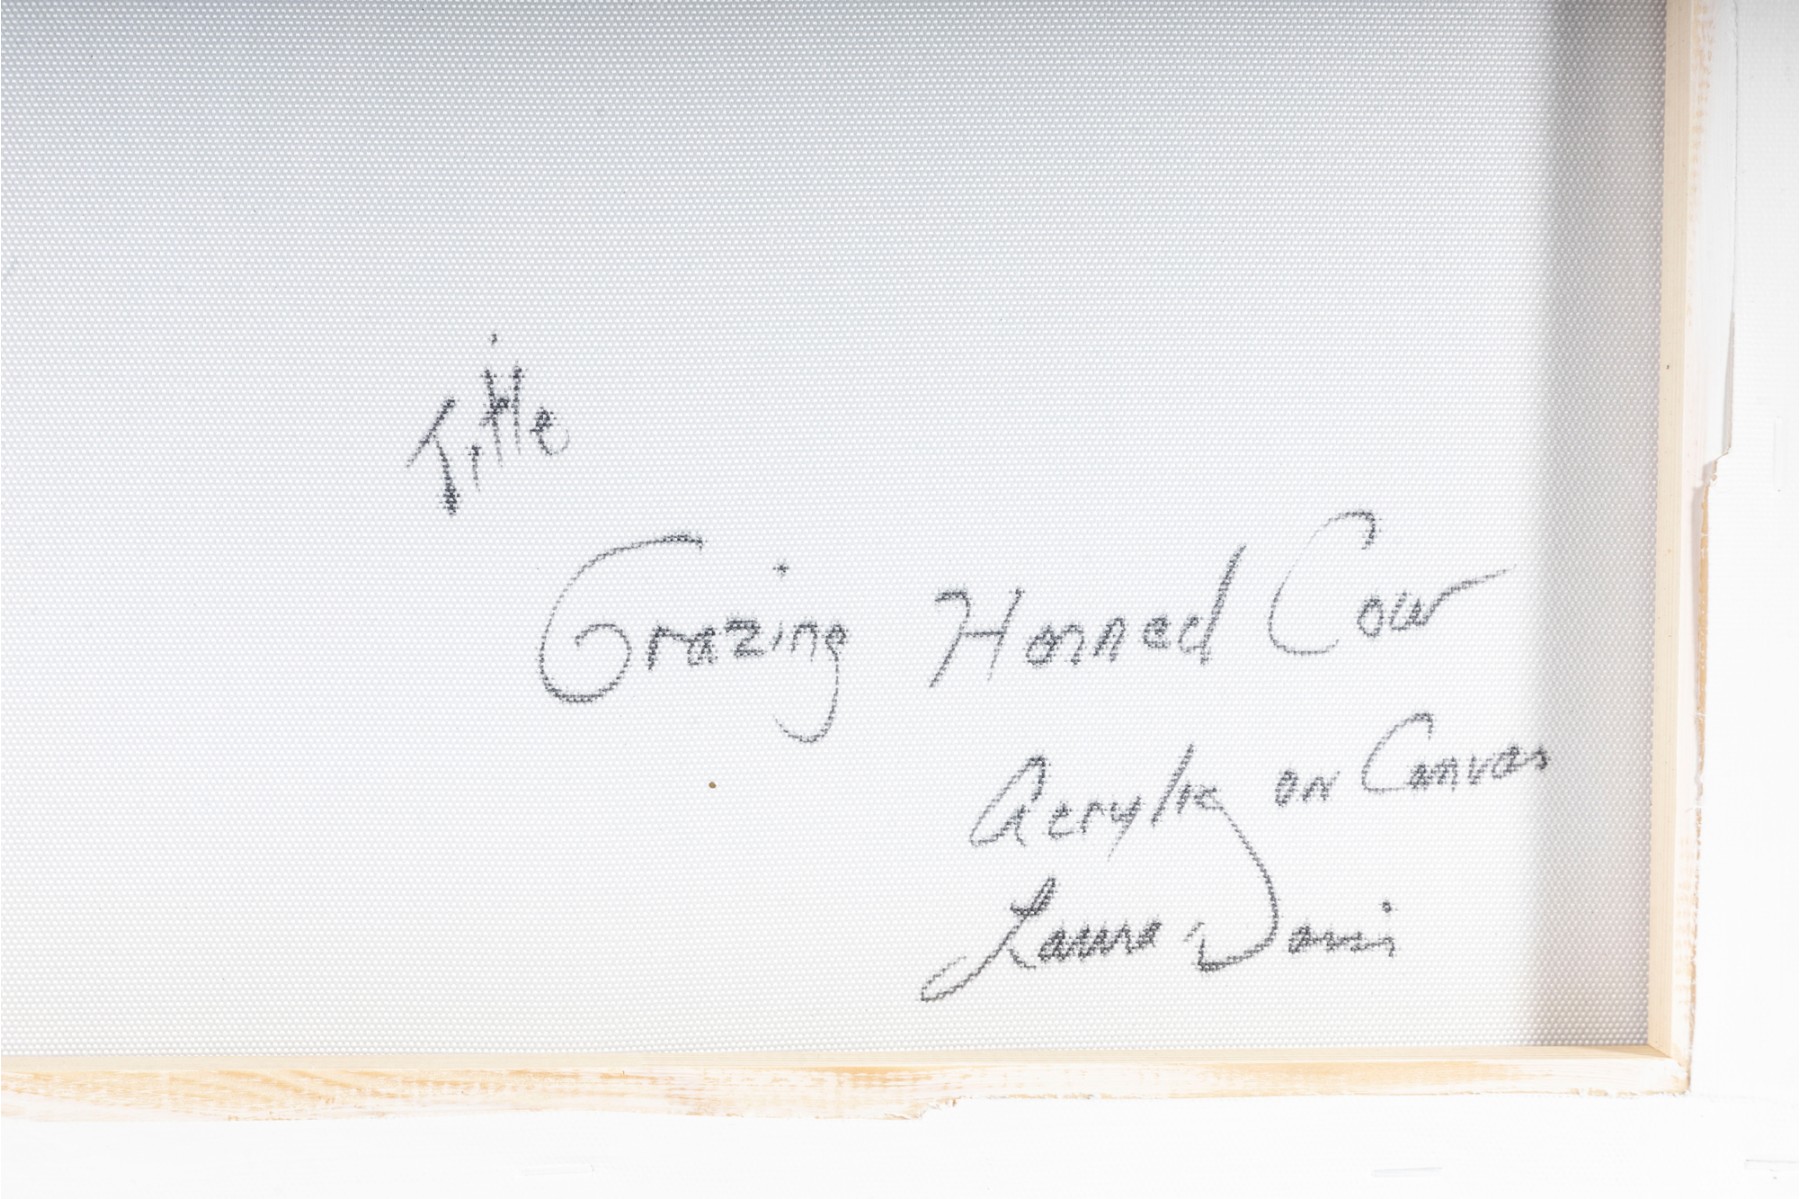 Title
Grazing Horned Cow
Acrylic on Canvas
Laura Davis